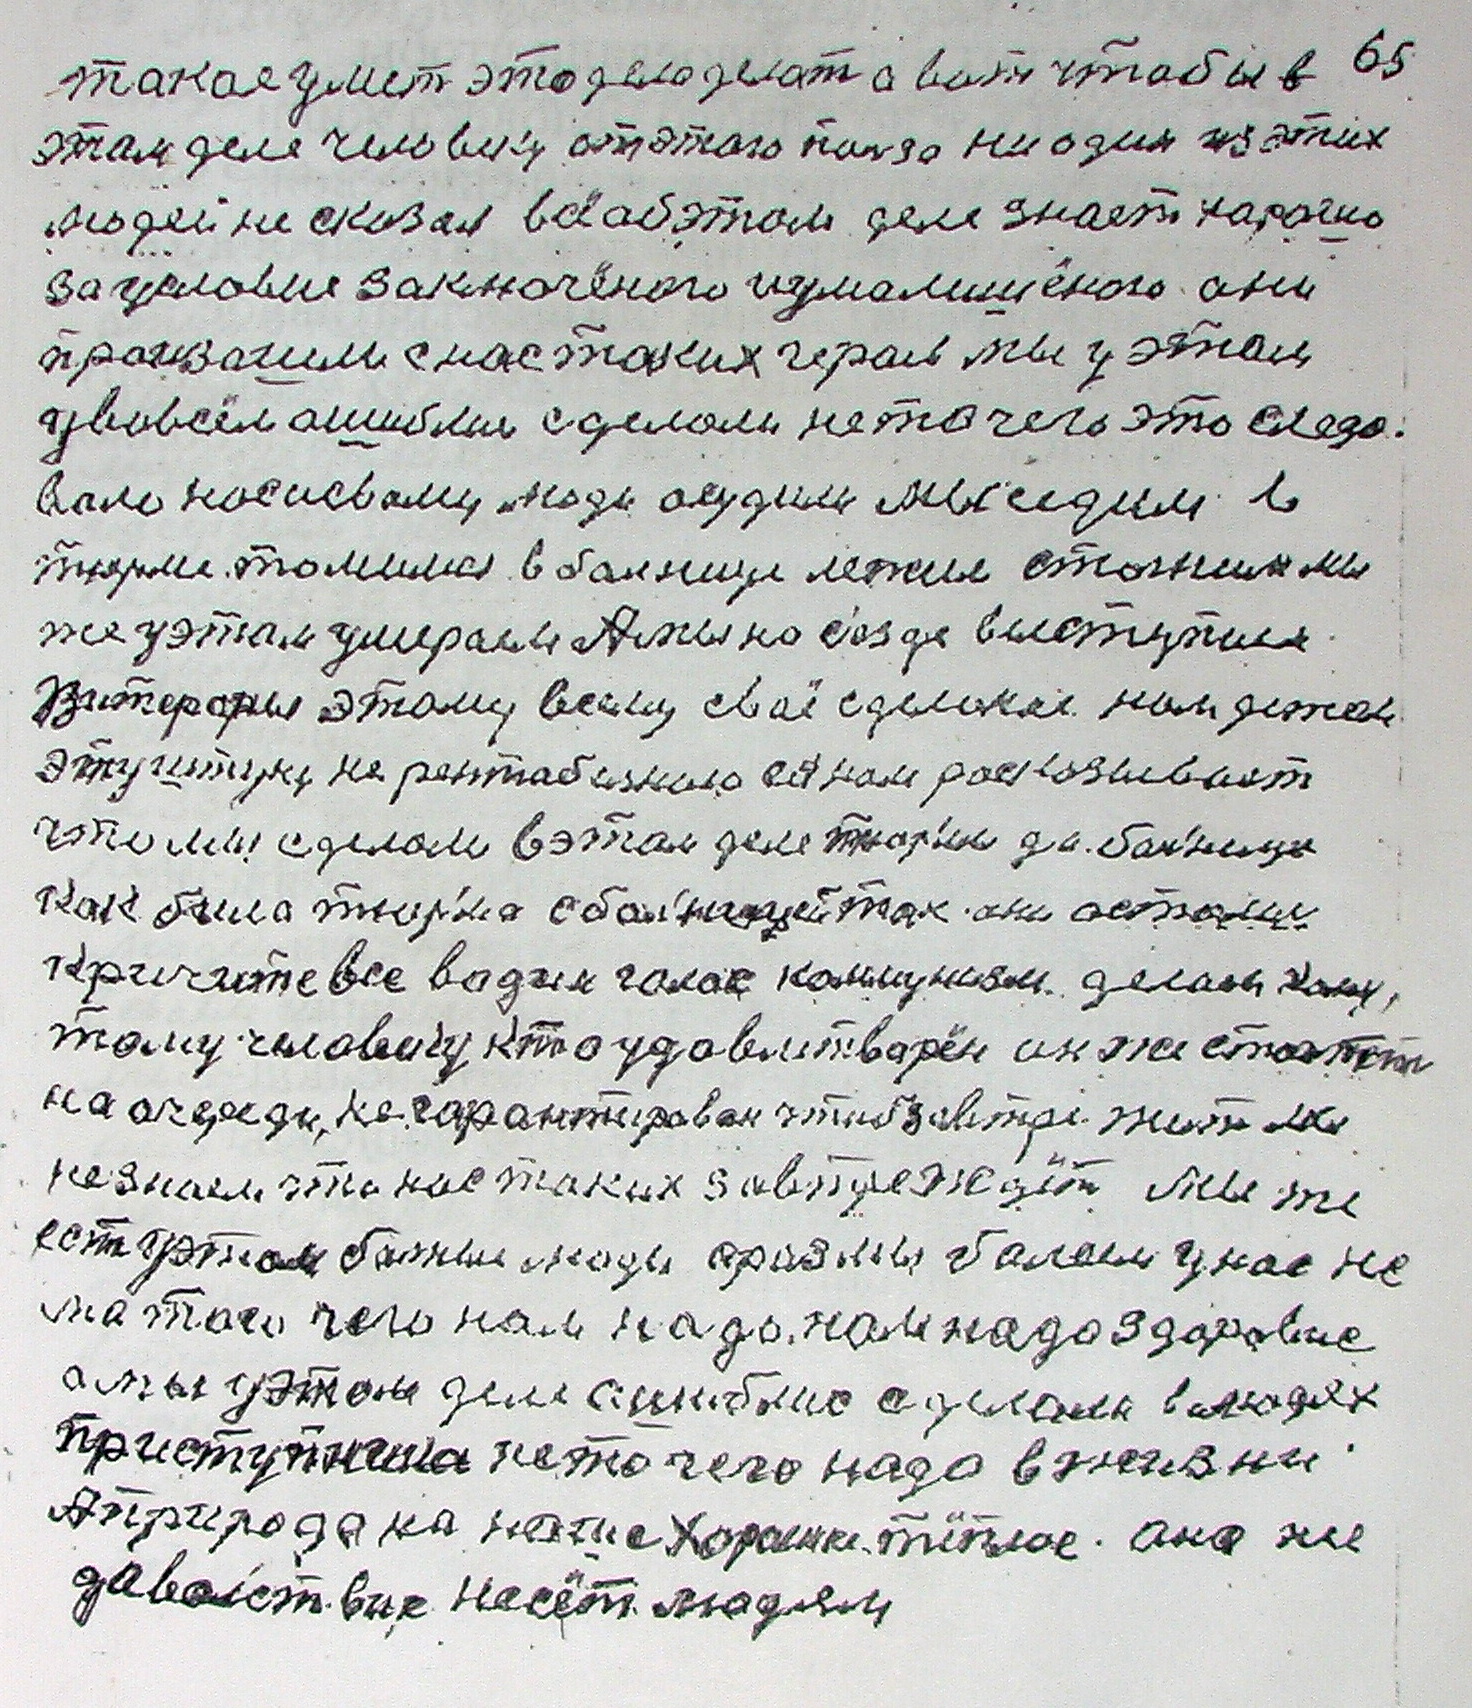 65
такое умеет это дело делат а вот чтобы в
этам деле человеку отэтого полза ни один из этих
людей не сказал всё обэтом деле знает харошо
за условие заключёного иумалишёного они
произашли с нас таких героев мы у этом
увовсём ошиблис сделоли не то чего это следо
вало носисвому люди осудили мы седим в
тюрме томимся в болнице лежим стогним мы
же уэтам умераем А мы на сезде выступили
этому всему своё сделоное нам детам
этуштуку не рентабельно её нам расказывает
что мы сделали в этам деле тюрмы да болницы
как была тюрма с болницей так они осталис
кричите все водин голос коммунизм делаем кому,
тому человеку кто удавлитварён он же стоит
на очереди, не гарантирован чтоб завтре жит мы
незнаем что нас таких завтре ждёт Мы же
ест уэтом болные люди сразмы болеем унас не
ма таго чего нам надо. нам надо здоровие
а мы уэтом деле ошиблис сделали в людях
приступника не то чего надо в жизни
А природа на нашие хорошие тёплое. она же
даволствие несёт людям